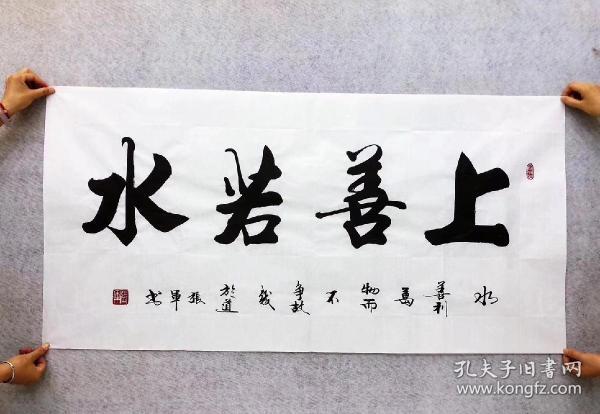 上善若水
水善利萬物而不争故几於道 張軍书
孔夫子旧书网
www.kongfz.com